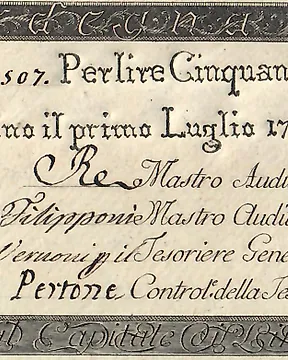 507. Per lire Cinquan
no il primo Luglio 17
Re Mastro Audi
Filipponi Mastro Audi
Vernoni p il Tesoriere Gene
Pertone Control.e della Te